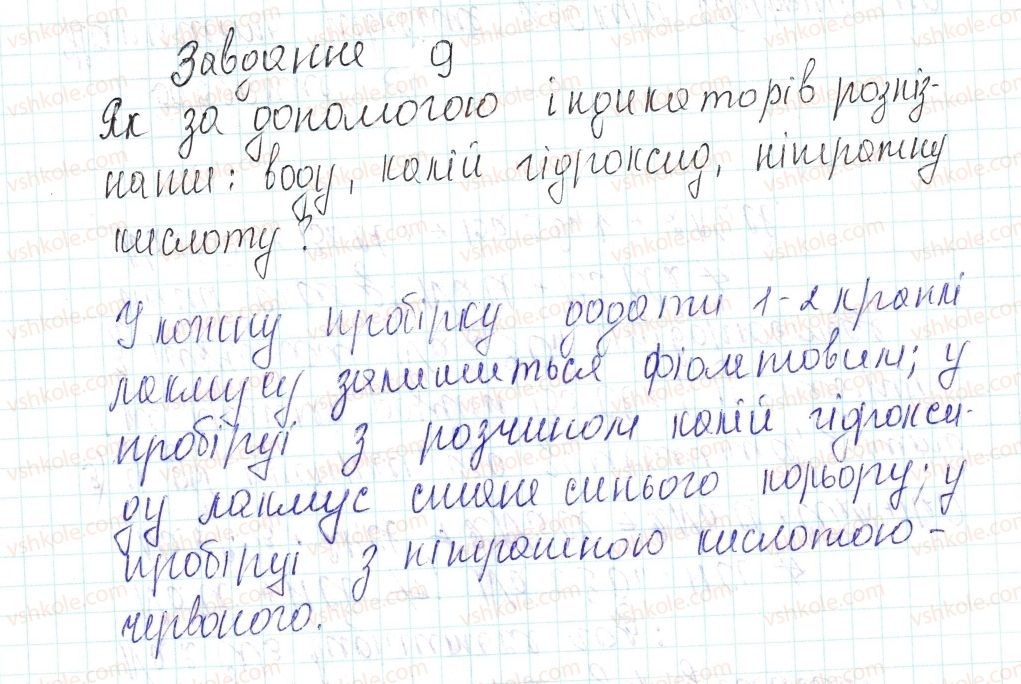 Завдання 9
Як за допомогою індикаторів розпіз-
нати: воду, калій гідроксид, нітратну
кислоту?
У кожну пробірку додати 1-2 краплі
лакмусу залишиться фіолетовим; у
пробірці з розчином калій гідрокси-
ду лакмус стане синього кольору; у
пробірці з нітратною кислотою -
червоного.